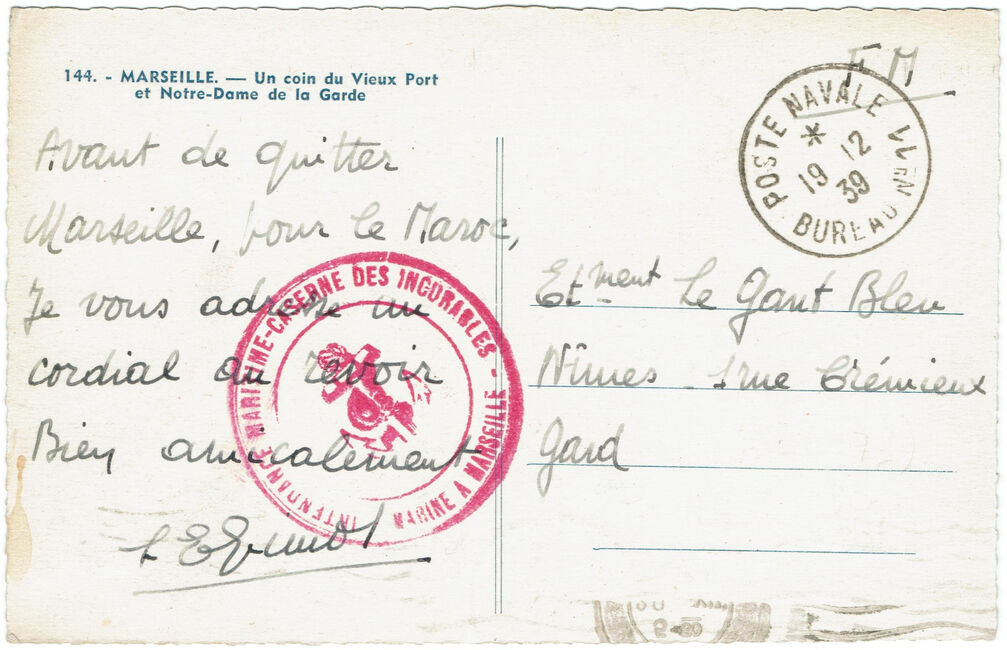 144. - MARSEILLE. — Un coin du Vieux Port
et Notre-Dame de la Garde
F M
POSTE NAVALE
*
19 12
39
BUREAU N° 11
Avant de quitter
Marseille, pour le Maroc,
Je vous adresse un
cordial au revoir
Bien amicalement
INTENDANCE MARITIME-CASERNE DES INCURABLES -
MARINE A MARSEILLE
Etment Le Gant Bleu
Nîmes - 1 rue Crémieux
Gard